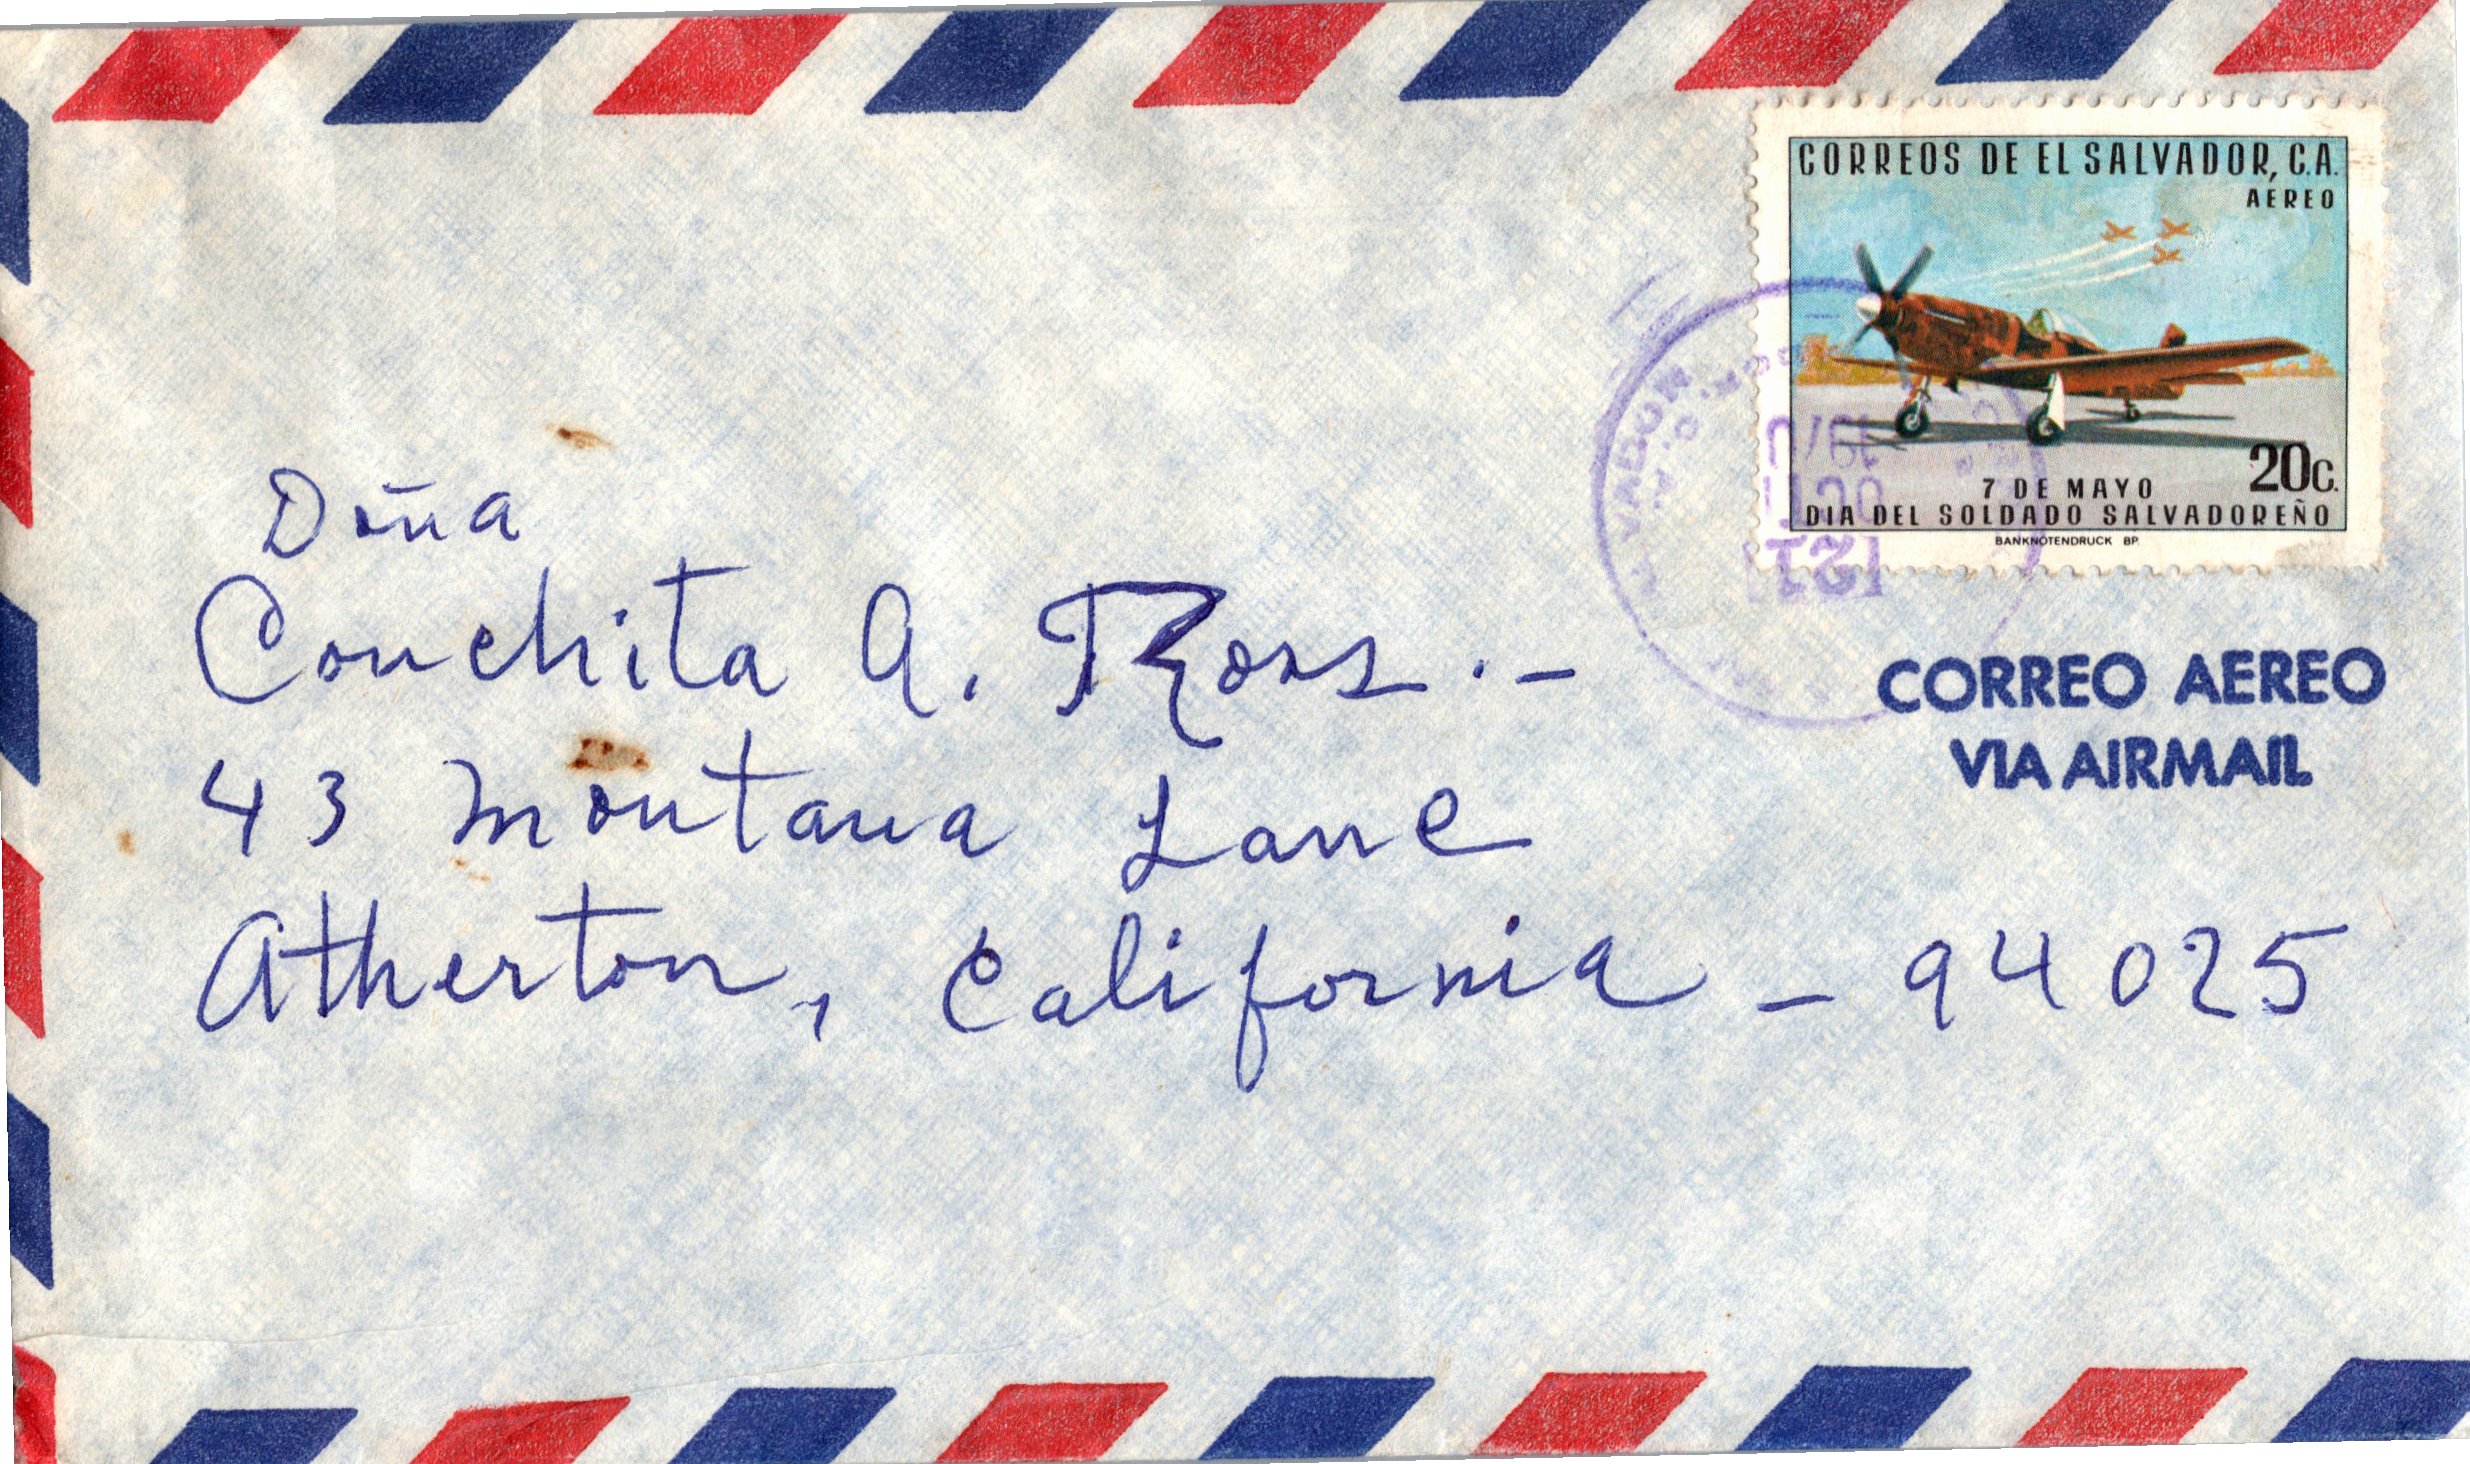 CORREOS DE EL SALVADOR, C.A.
AEREO
20c.
7 DE MAYO
DIA DEL SOLDADO SALVADOREÑO
BANKNOTENDRUCK BP.
OCT
1970
CORREO AEREO
VIA AIRMAIL
Doña
Conchita A. Ross.-
43 Montana Lane
Atherton, California - 94025